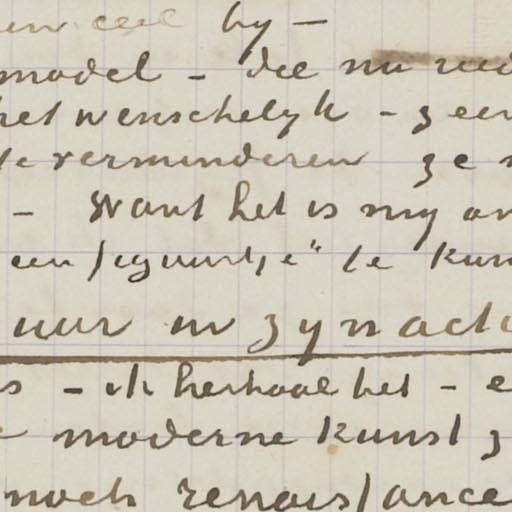 by –
model – die nu
het wenschelyk – zeer
te verminderen ze
– Want het is my
een figuurtje" te kun
uur in zyn actie
s – ik herhaal het – e
moderne kunst z
noch renaissance